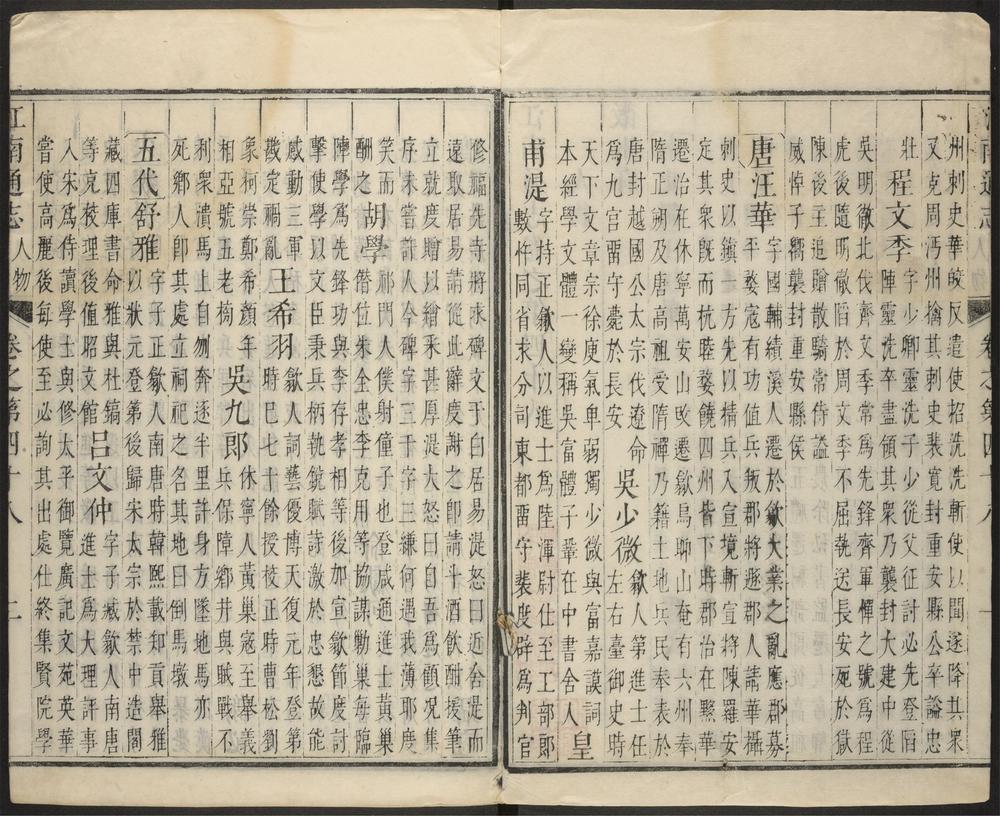 州刺史華皎反遣使招洗洗斬使以聞遂降其眾
又克周沔州擒其刺史裴寬封重安縣公卒謚忠
壯
程文季 字少卿靈洗子少從父征討必先登陷
陣靈洗卒盡領其眾乃襲封大建中從
吳明徹北伐齊文季常為先鋒齊軍憚之號為程
虎後隨明徹陷於周文季不屈執送長安死於獄
陳後主追贈散騎常侍謚
威悼子嚮襲封重安縣侯
唐汪華 字國輔績溪人遷於歙大業之亂應郡募
平婺寇有功值兵叛郡將遜郡人請華攝
刺史以鎮一方先以精兵入宣境斬宣將陳羅安
定其眾既而杭睦婺饒四州皆下時郡治在黟華
遷治在休寧萬安山改遷歙烏聊山奄有六州奉
隋正朔及唐高祖受隋禪乃籍土地兵民奉表於
唐封越國公太宗伐遼命
為九宮留守薨於長安
吳少微 歙人第進士任
左右臺御史時
天下文章宗徐庾氣卑弱獨少微與富嘉謨詞
本經學文體一變稱吳富體子鞏在中書舍人
皇
甫湜 字持正歙人以進士為陸渾尉仕至工部郎
數忤同省求分司東都留守裴度辟為判官
江南通志 人物 卷之第四十八 二
修福先寺將求碑文于白居易湜怒曰近舍湜而
遠取居易請從此辭度謝之即請斗酒飲酣援筆
立就度贈以繒釆甚厚湜大怒曰自吾為顧况集
序未嘗許人今碑字三千字三縑何遇我薄耶度
笑而
酬之
胡學 祁門人僕射僮子也登咸通進士黃巢
僭位朱全忠李克用等協謀勦巢每臨
陣學為先鋒功與李存孝相等後加宣歙節度討
擊使學以文臣秉兵柄執銳賦詩激於忠懇故能
感動三軍
戡定禍亂
王希羽 歙人詞藝優博天復元年登第
時巳七十餘授校正與時曹松劉
象柯崇鄭希顏年
相亞號五老榜
吳九郎 休寧人黃巢寇至舉義
兵保障鄉井與賊戰不
利衆潰馬上自刎奔逐半里許身方墜地馬亦
死鄉人即其處立祠祀之名其地曰倒馬墩
五代舒雅 字子正歙人南唐時韓熙載知貢舉雅
以狀元登第後歸宋太宗於禁中造閣
藏四庫書命雅與杜鎬
等克校理後值昭文館
呂文仲 字子臧歙人南唐
進士為大理評事
入宋為侍讀學士與修太平御覽廣記文苑英華
嘗使高麗後每使至必詢其出處仕終集賢院學